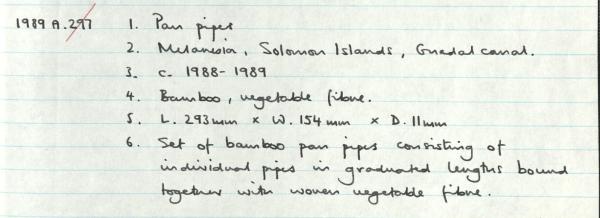 1989 A.297 1. Pan pipes
2. Melanesia, Solomon Islands, Guadalcanal.
3. c. 1988-1989
4. Bamboo, vegetable fibre.
5. L. 293mm x W. 154mm x D. 11mm
6. Set of bamboo pan pipes consisting of
individual pipes in graduated lengths bound
together with woven vegetable fibre.